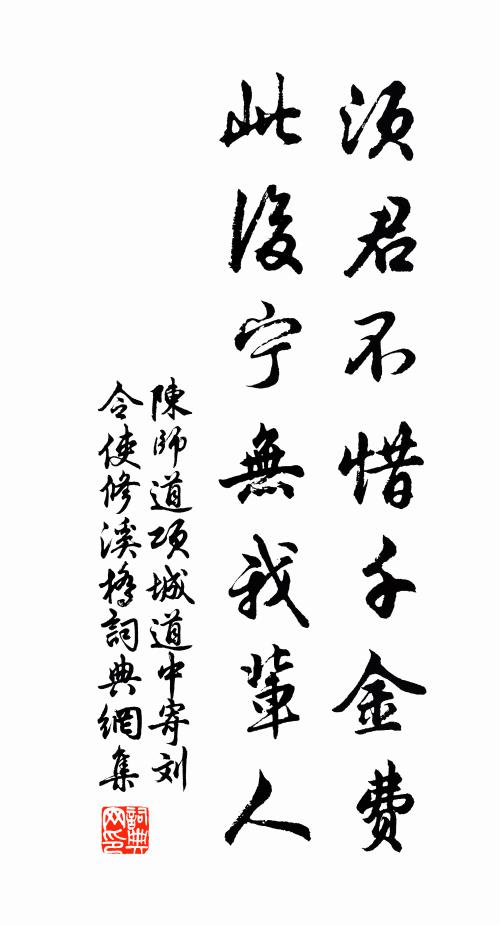 須君不惜千金費
此後宁無我輩人
陳師道項城道中寄刘
令使修溪橋詞典網集
詞典
网印